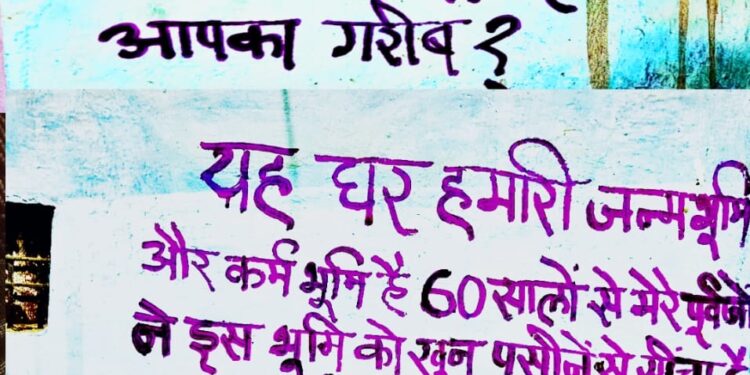 आपका गरीब ?
यह घर हमारी जन्मभूमि
और कर्म भूमि है 60 सालों से मेरे पूर्वजों
ने इस भूमि को खून पसीने से सींचा है